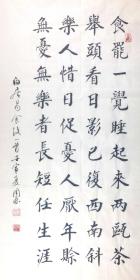 食罷一覺睡起來兩甌茶
舉頭看日影已復西南斜
樂人惜日促憂人厭年賒
無憂無樂者長短任生涯
白居易食後一首